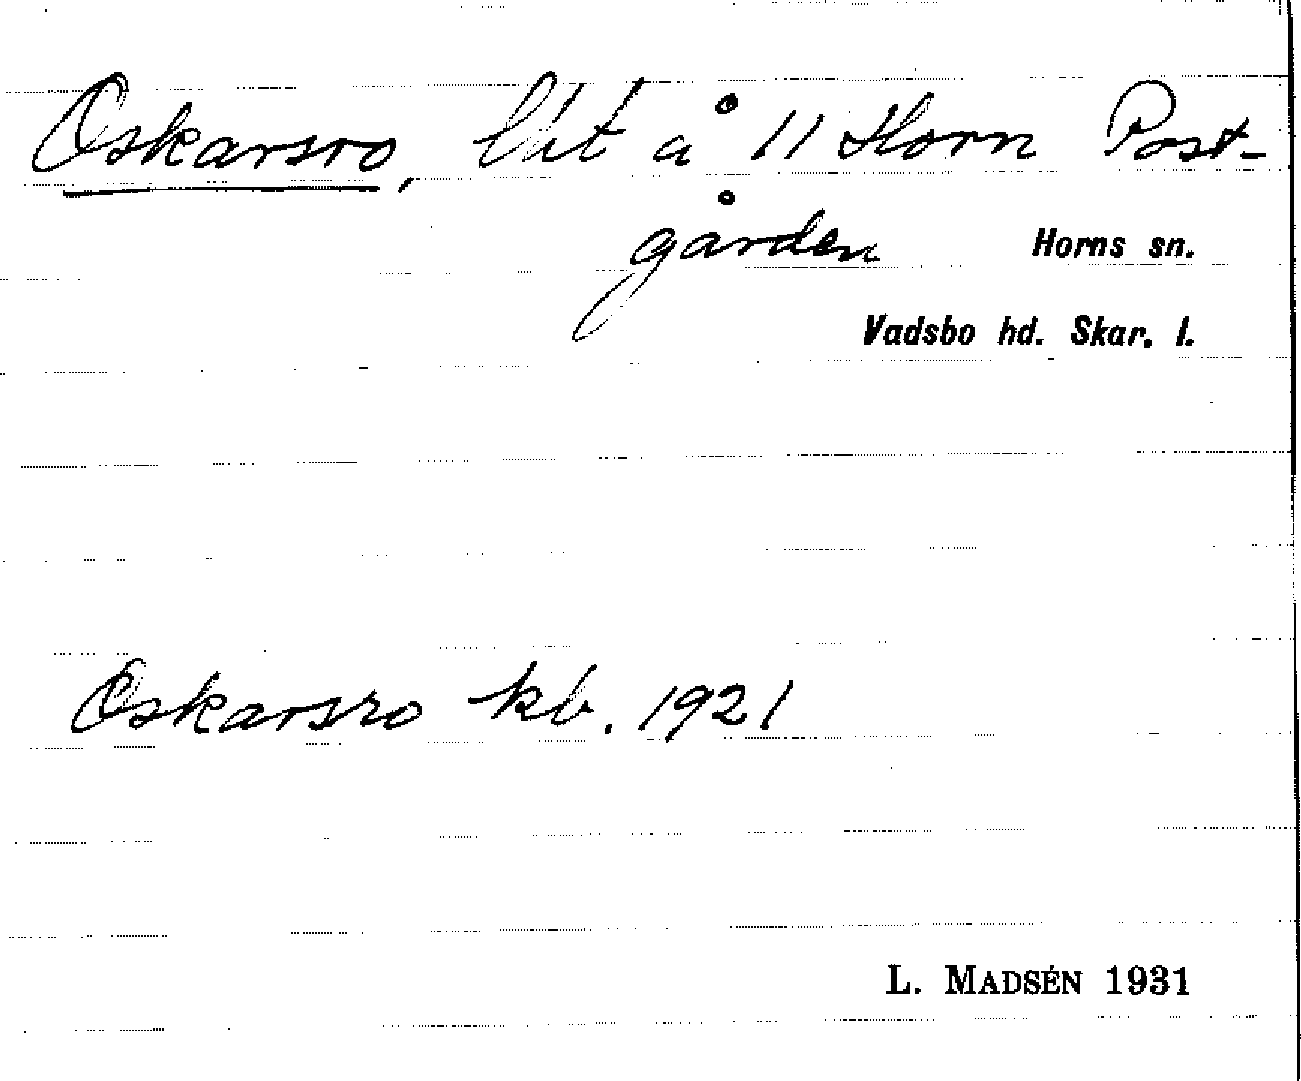 Oskarsro, lht å 11 Horn Post-
gården Horns sn.
Vadsbo hd. Skar. l.
Oskarsro kb. 1921
L. MADSÉN 1931